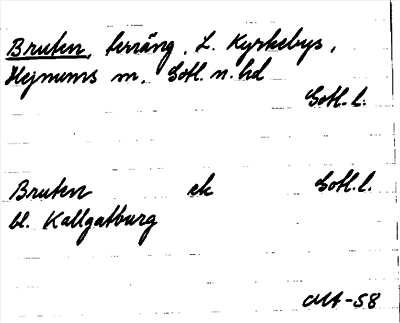 Bruten, terräng, L. Kyrkebys,
Hejnums sn, Gotl. n. hd
Gotl. l.
Bruten ek Gotl. l.
bl. Kallgatburg
OUA-58